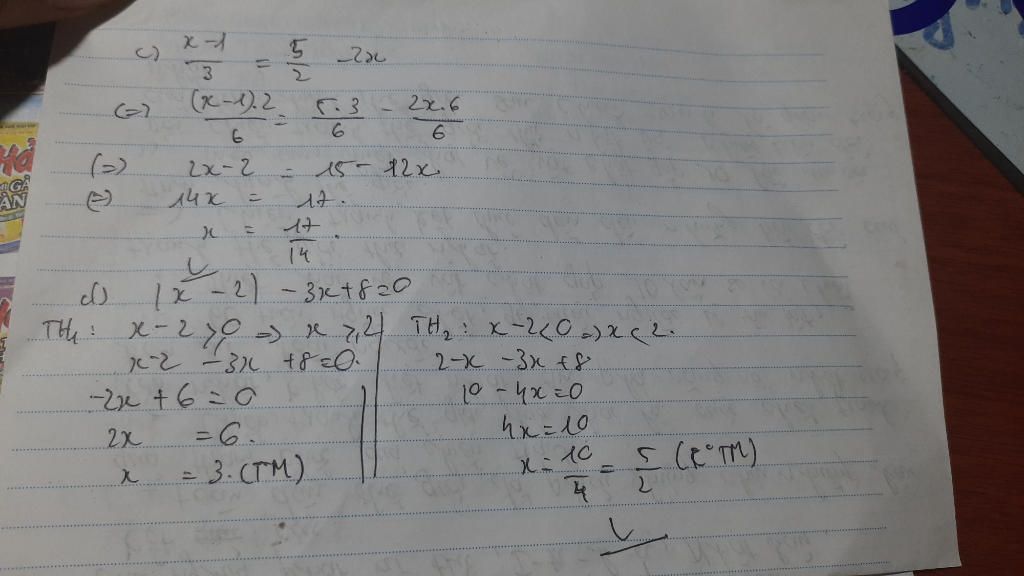 c) x-1/3 = 5/2 - 2x
(=) (x-1).2/6 = 5.3/6 - 2x.6/6
(=) 2x-2 = 15-12x.
(=) 14x = 17.
x = 17/14.
d) |x-2| - 3x+8=0
TH1: x-2≥0 => x≥2
x-2 -3x +8=0.
-2x+6=0
2x =6.
x =3.(TM)
TH2: x-2<0 => x<2.
2-x -3x+8
10-4x=0
4x=10
x=10/4 = 5/2 (K°TM)